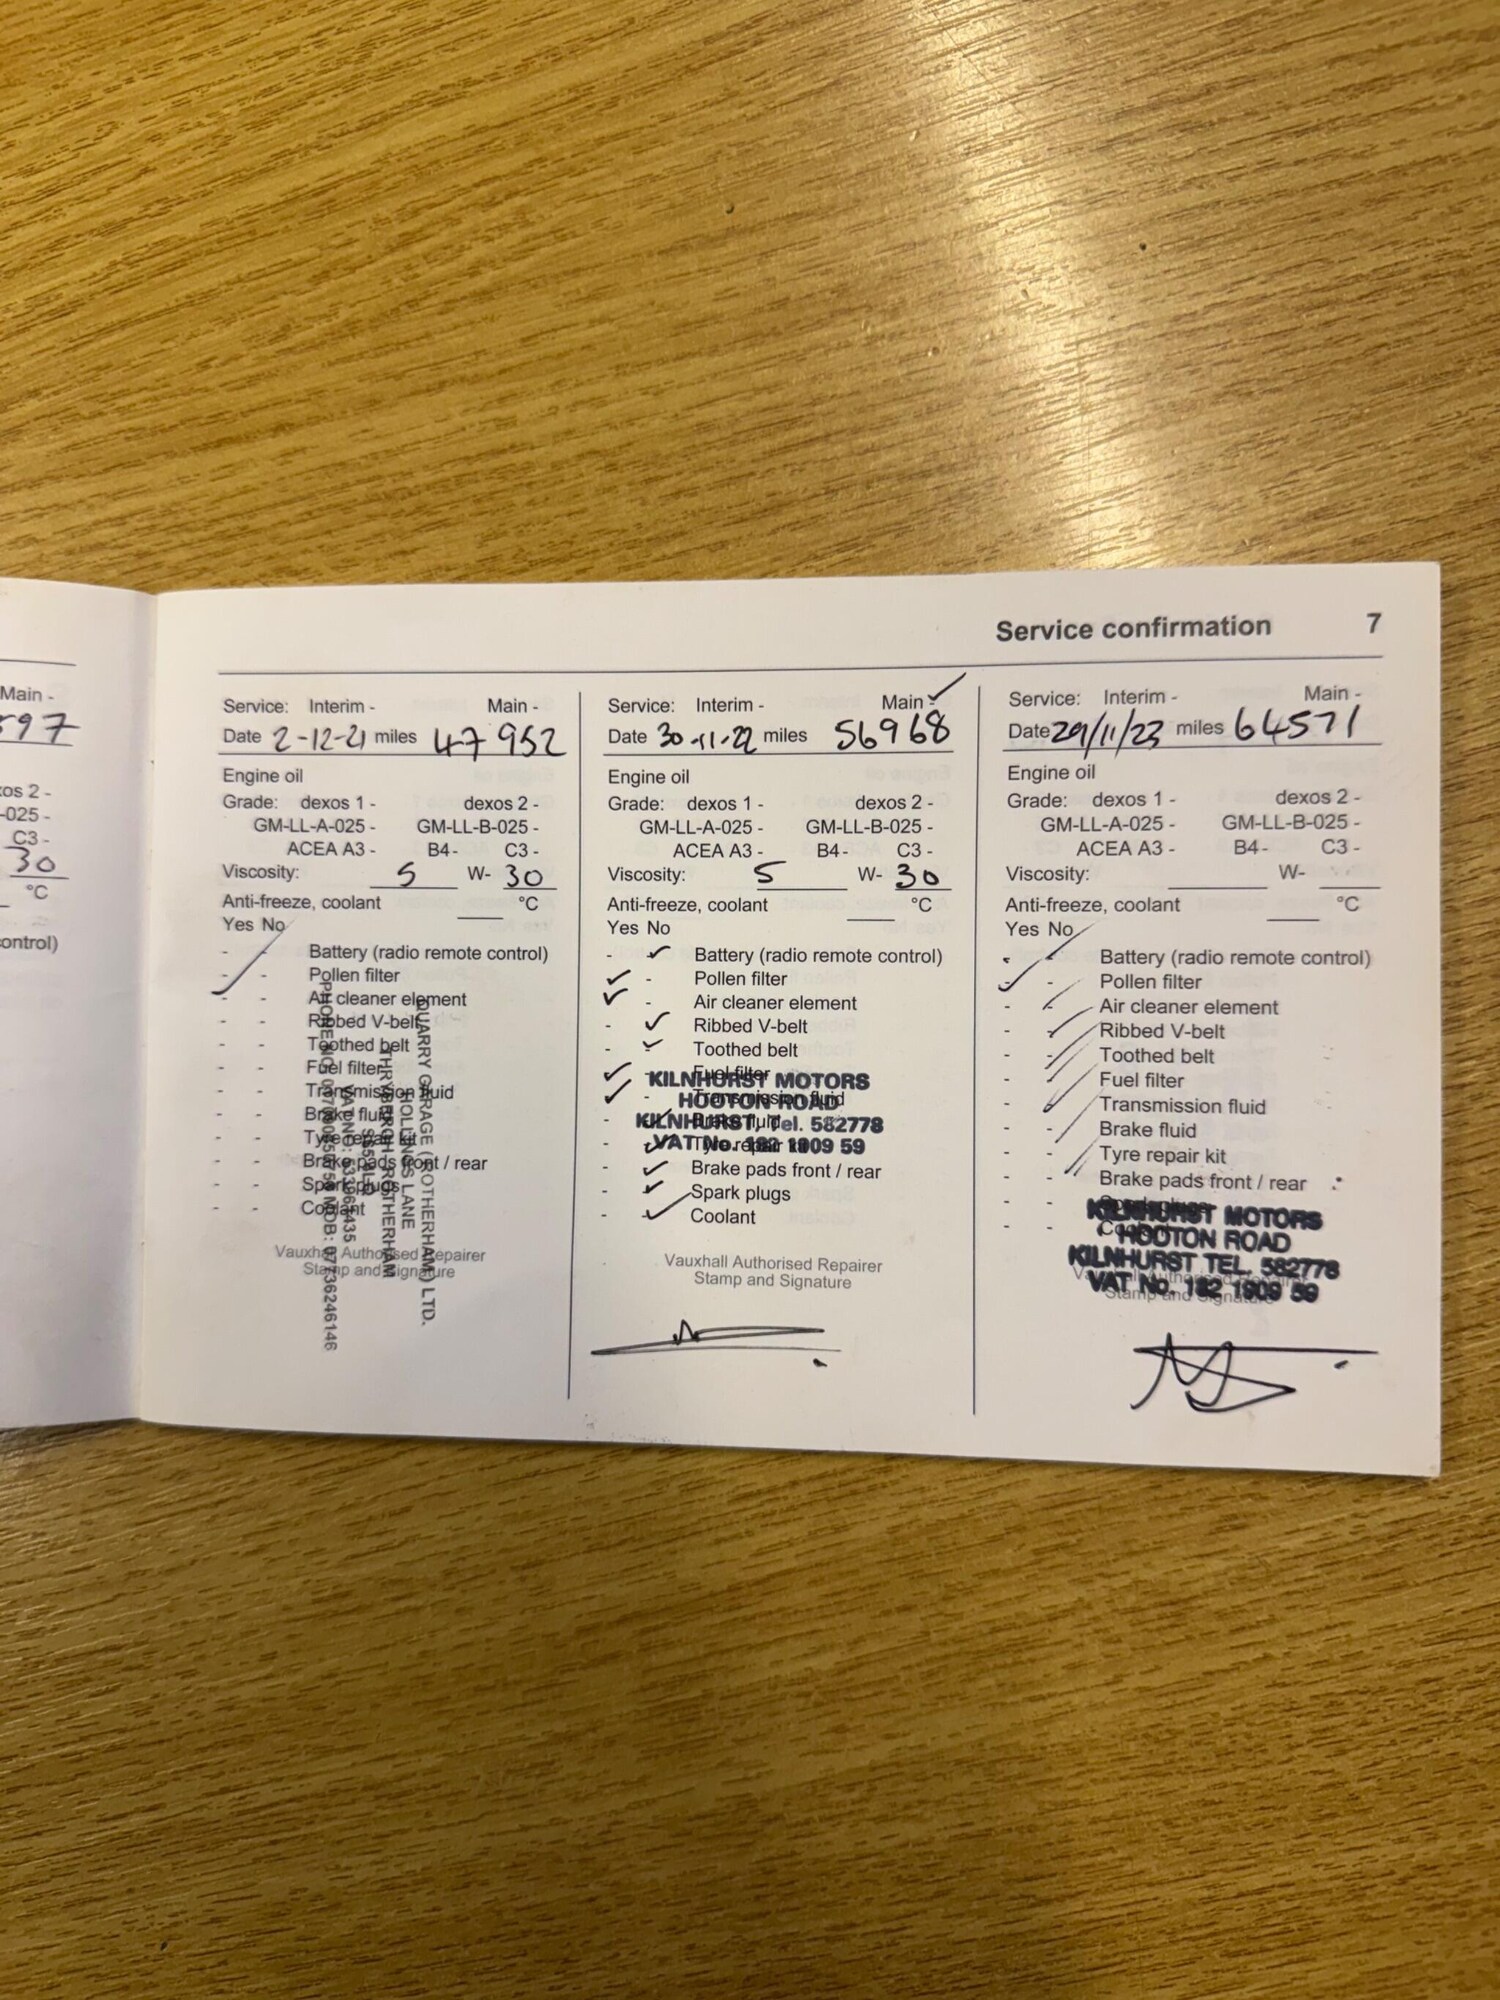 Service confirmation 7
Main -
597
os 2 -
-025 -
C3 -
30
°C
ontrol)
Service: Interim - Main -
Date 2-12-21 miles 47952
Engine oil
Grade: dexos 1 - dexos 2 -
GM-LL-A-025 - GM-LL-B-025 -
ACEA A3 - B4 - C3 -
Viscosity: 5 W- 30
Anti-freeze, coolant °C
Yes No
- - Battery (radio remote control)
- - Pollen filter
- - Air cleaner element
- - Ribbed V-belt
- - Toothed belt
- - Fuel filter
- - Transmission fluid
- - Brake fluid
- - Tyre repair kit
- - Brake pads front / rear
- - Spark plugs
- - Coolant
Vauxhall Authorised Repairer
Stamp and Signature
QUARRY GARAGE (ROTHERHAM) LTD.
HOLLINGS LANE
THRYBERGH, ROTHERHAM
MOB: 07736246146
Service: Interim - Main - ✓
Date 30-11-22 miles 56968
Engine oil
Grade: dexos 1 - dexos 2 -
GM-LL-A-025 - GM-LL-B-025 -
ACEA A3 - B4 - C3 -
Viscosity: 5 W- 30
Anti-freeze, coolant °C
Yes No
- ✓ Battery (radio remote control)
✓ - Pollen filter
✓ - Air cleaner element
- ✓ Ribbed V-belt
- ✓ Toothed belt
✓ - Fuel filter
✓ Transmission fluid
- ✓ Brake fluid
- ✓ Tyre repair kit
- ✓ Brake pads front / rear
- ✓ Spark plugs
- ✓ Coolant
KILNHURST MOTORS
HOOTON ROAD
KILNHURST, Tel. 582778
VAT No. 182 1909 59
Vauxhall Authorised Repairer
Stamp and Signature
Service: Interim - Main -
Date 29/11/23 miles 64571
Engine oil
Grade: dexos 1 - dexos 2 -
GM-LL-A-025 - GM-LL-B-025 -
ACEA A3 - B4 - C3 -
Viscosity: W-
Anti-freeze, coolant °C
Yes No
Battery (radio remote control)
Pollen filter
Air cleaner element
Ribbed V-belt
Toothed belt
Fuel filter
Transmission fluid
Brake fluid
Tyre repair kit
Brake pads front / rear
Spark plugs
Coolant
KILNHURST MOTORS
HOOTON ROAD
KILNHURST TEL. 582778
VAT No. 182 1909 59
Vauxhall Authorised Repairer
Stamp and Signature